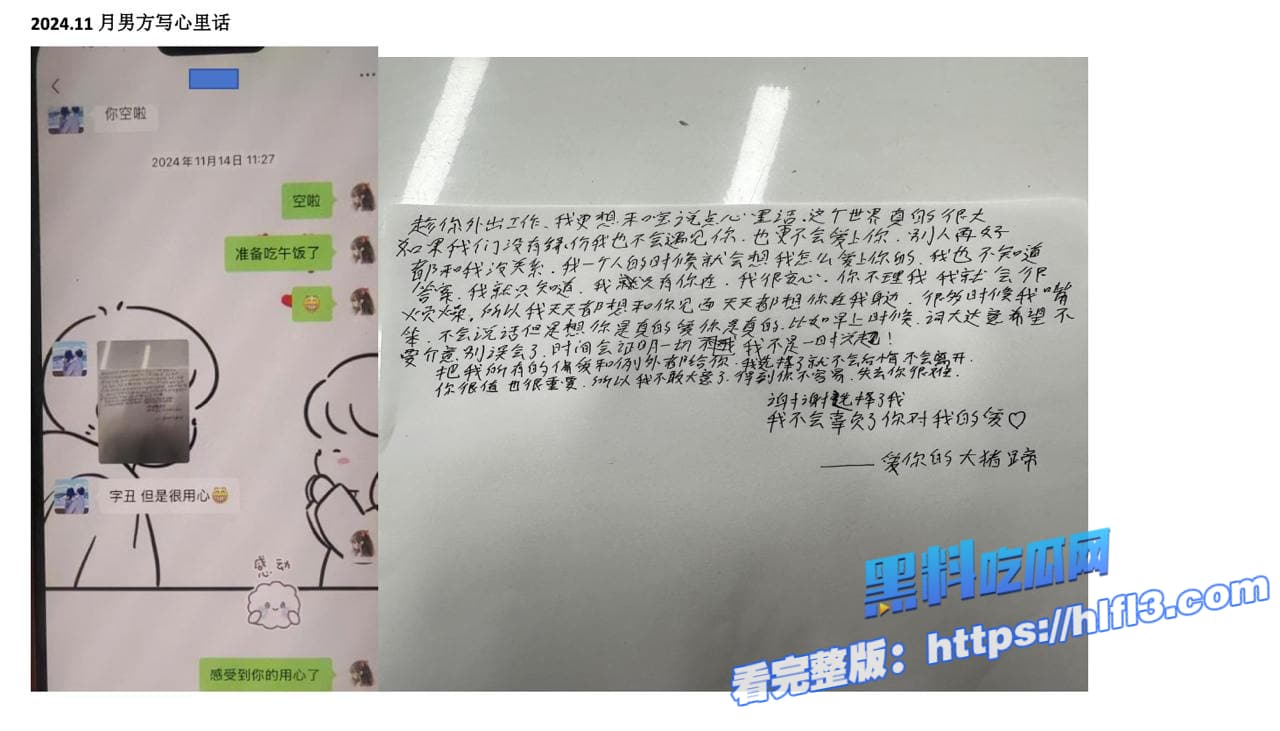 2024.11 月男方写心里话
你空啦
2024年11月14日 11:27
空啦
准备吃午饭了
字丑 但是很用心
感动
感受到你的用心了
趁你外出工作、我更想和宝说点心里话、这个世界真的很大
如果我们没有缘份我也不会遇见你、也更不会爱上你、别人再好
都和我没关系、我一个人的时候就会想我怎么爱上你的、我也不知道
答案、我就只知道、我就只有你在、我很安心、你不理我 我就会很
烦燥。所以我天天都想和你见面 天天都想你在我身边、很多时候我嘴
笨、不会说话但是想你是真的爱你是真的、比如早上时候、词大达意希望不
要介意别误会了、时间会证明一切 我不是一时兴起！
把我所有的偏爱和例外都给你、我选择了就不会后悔不会离开、
你很值 也很重要、所以我不敢大意了、得到你不容易、失去你很难、
谢谢选择了我
我不会辜负了你对我的爱♡
——爱你的大猪蹄
黑料吃瓜网
看完整版：https://hlfl3.com